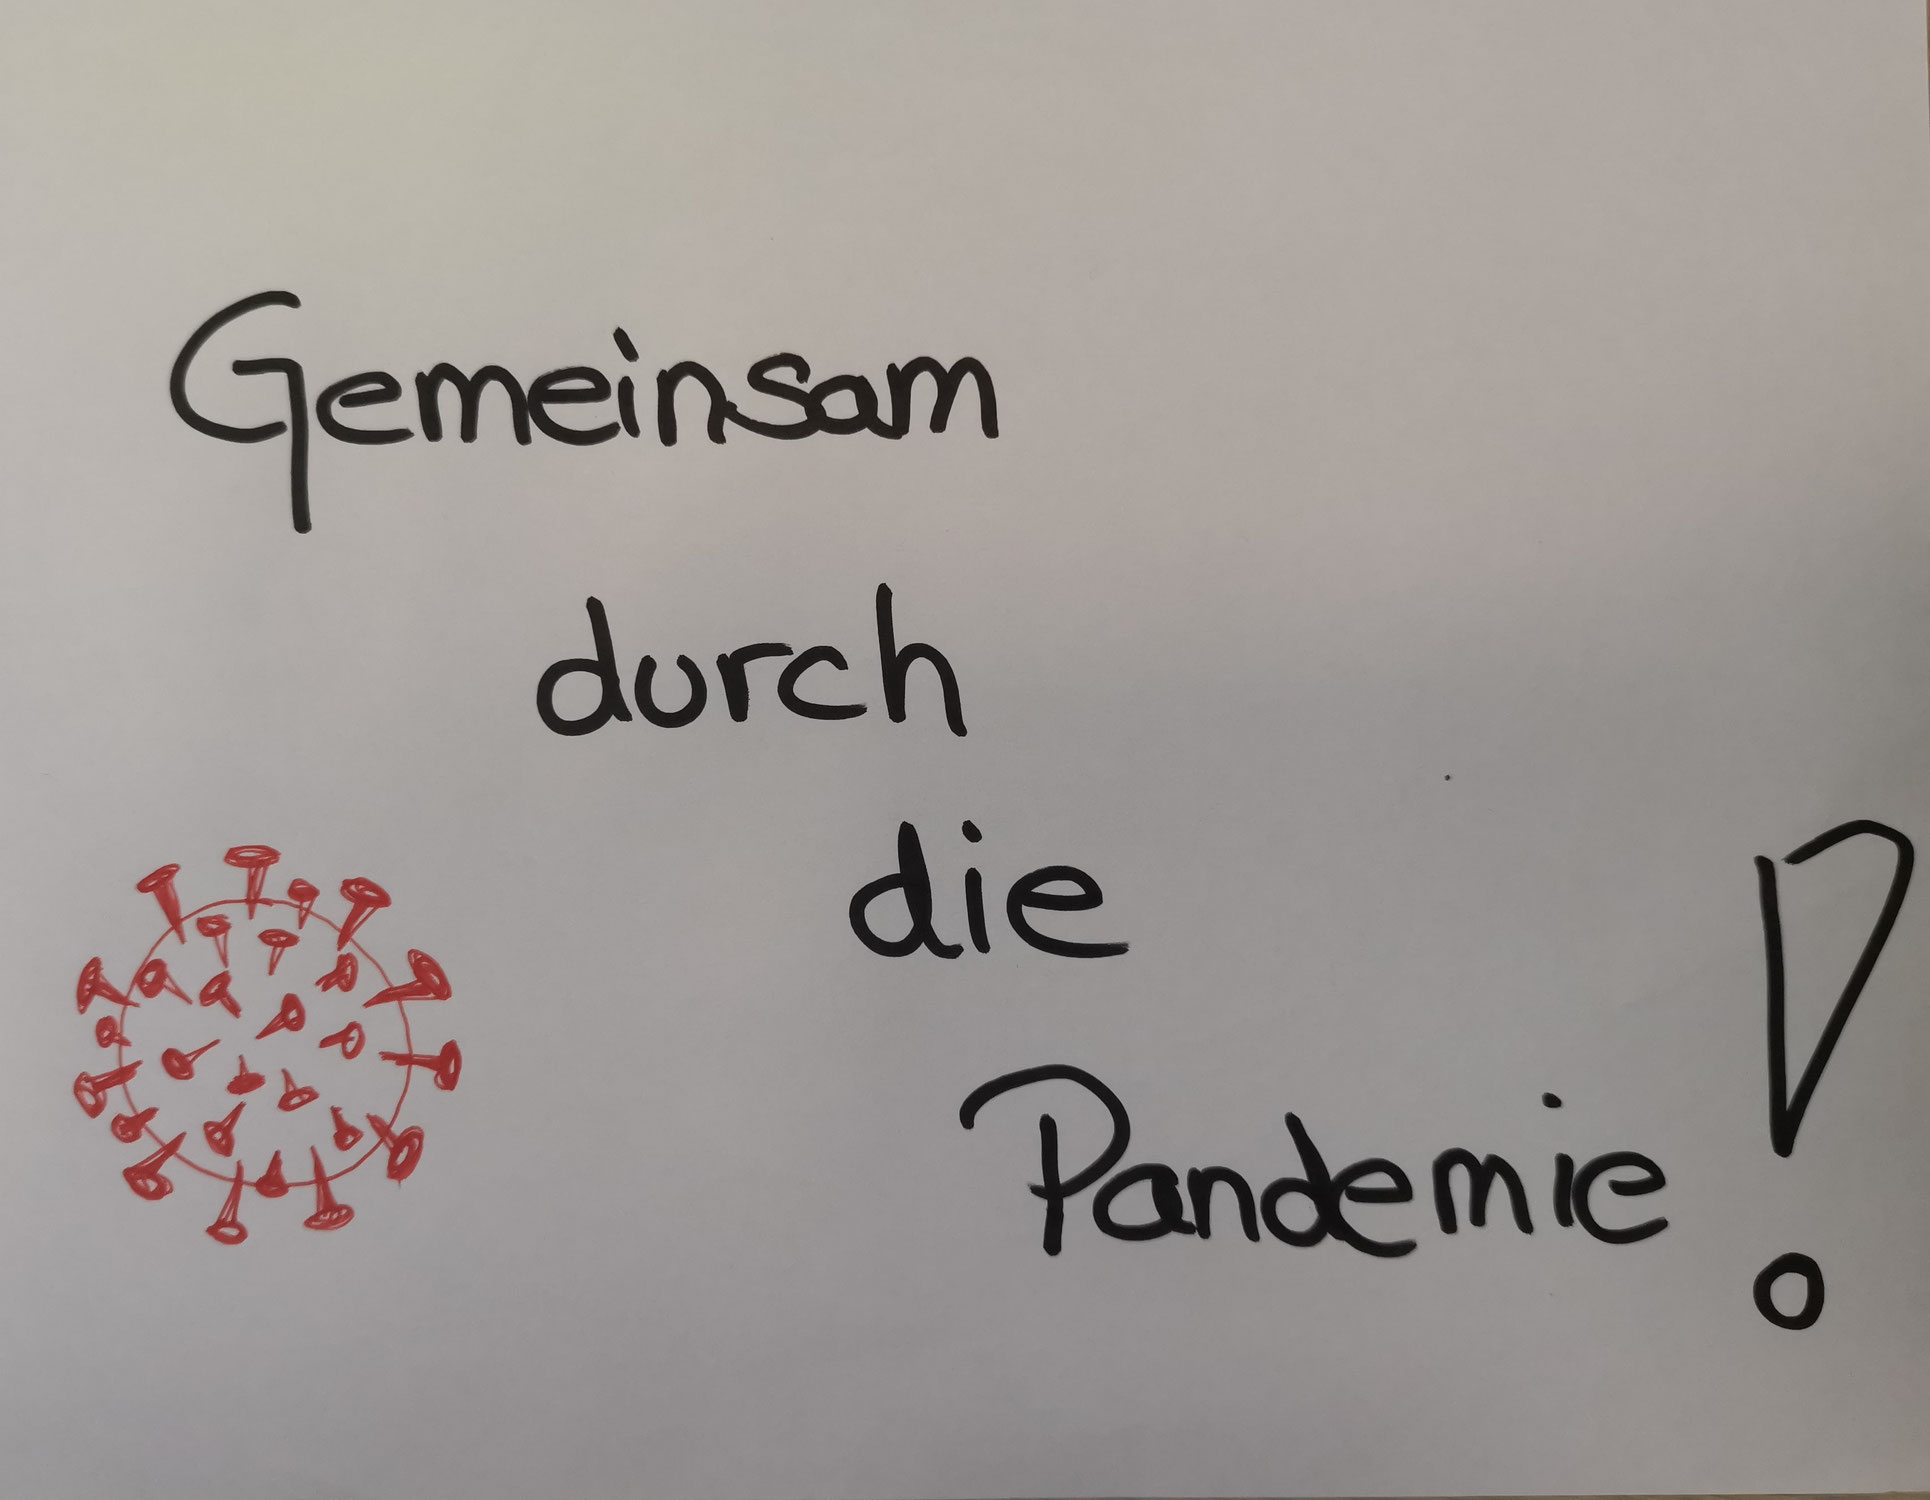 Gemeinsam
durch
die
Pandemie!